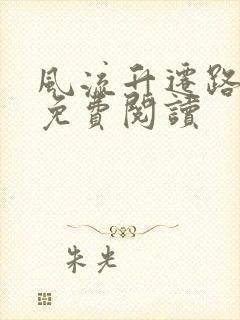 風流升遷路
免費閱讀
朱光